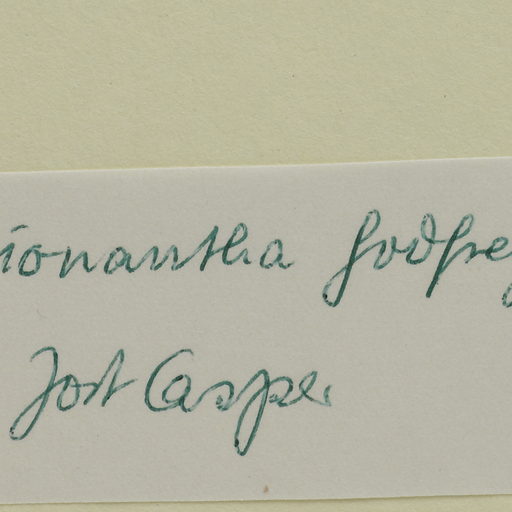 ionantha Godfrey
Jost Casper